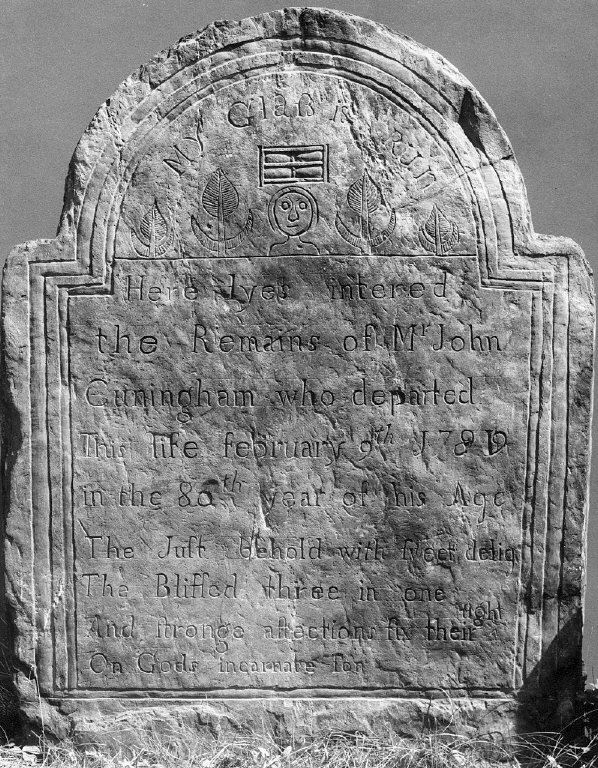 My Glaß is Run
Here lyes intered
the Remains of Mr John
Cuningham who departed
This life february 9th 1789
in the 80th year of his Age
The Juſt behold with ſweet deliq
The Bliſſed three in one ſight
And ſtronge affections fix their
On Gods incarnate ſon